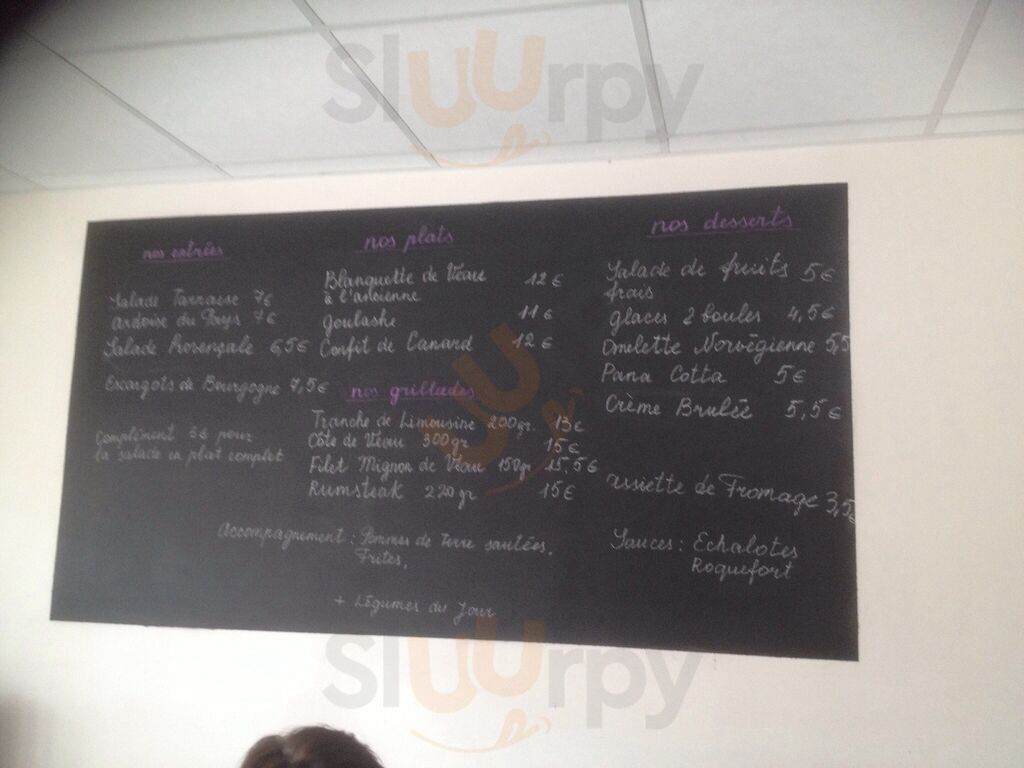 Sluurpy
nos entrées
Salade Tarraise 7€
Ardoise du Pays 7€
Salade Provençale 6,5€
Escargots de Bourgogne 7,5€
Complément 3€ pour
la salade en plat complet
nos plats
Blanquette de Veau 12€
à l'ancienne
Goulashe 11€
Confit de Canard 12€
nos grillades
Tranche de Limousine 200gr. 13€
Côte de Veau 300gr 15€
Filet Mignon de Veau 150gr 15,5€
Rumsteak 220gr 15€
Accompagnement : Pommes de Terre sautées.
Frites.
+ Légumes du Jour
nos desserts
Salade de fruits 5€
frais
glaces 2 boules 4,5€
Omelette Norvégienne 5,5
Pana Cotta 5€
Crème Brulée 5,5€
assiette de Fromage 3,5€
Sauces : Echalotes
Roquefort
Sluurpy